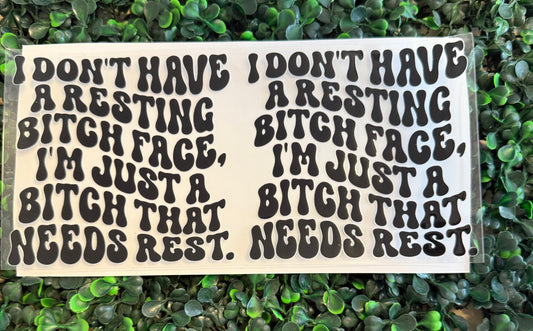 I DON'T HAVE
A RESTING
BITCH FACE,
I'M JUST A
BITCH THAT
NEEDS REST.
I DON'T HAVE
A RESTING
BITCH FACE,
I'M JUST A
BITCH THAT
NEEDS REST